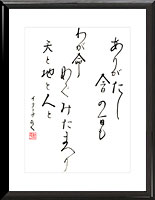 ありがたし
今の一日も
わが命
めぐみたまへり
天と地と人と